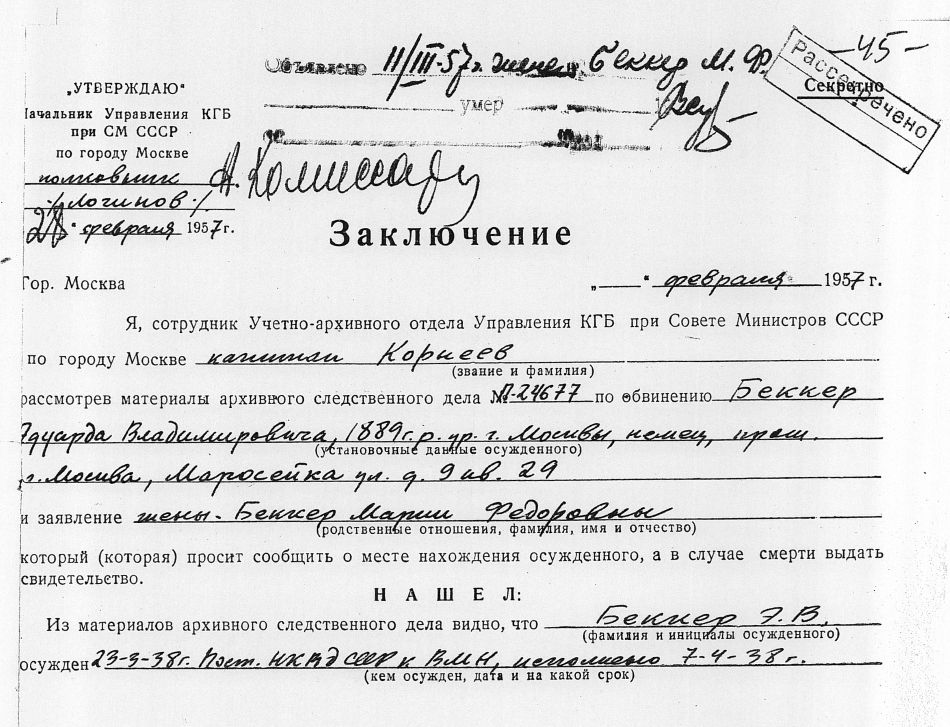 Объявлено 11/III-57г. жене Беккер М. Ф.
-45-
Рассекречено
Секретно
умер
„УТВЕРЖДАЮ“
Начальник Управления КГБ
при СМ СССР
по городу Москве
полковник
/Логинов/
28 “ февраля 1957г.
Заключение
Гор. Москва
„ “ февраля 1957 г.
Я, сотрудник Учетно-архивного отдела Управления КГБ при Совете Министров СССР
по городу Москве капитан Корнеев
(звание и фамилия)
рассмотрев материалы архивного следственного дела № П-24677 по обвинению Беккер
Эдуарда Владимировича, 1889г.р. ур. г. Москвы, немец, прож.
(установочные данные осужденного)
г. Москва, Маросейка ул. д. 9 кв. 29
и заявление жены - Беккер Марии Федоровны
(родственные отношения, фамилия, имя и отчество)
который (которая) просит сообщить о месте нахождения осужденного, а в случае смерти выдать
свидетельство.
НАШЕЛ:
Из материалов архивного следственного дела видно, что Беккер Э. В.
(фамилия и инициалы осужденного)
осужден 23-3-38г. Пост. НКВД СССР к ВМН, исполнено 7-4-38г.
(кем осужден, дата и на какой срок)